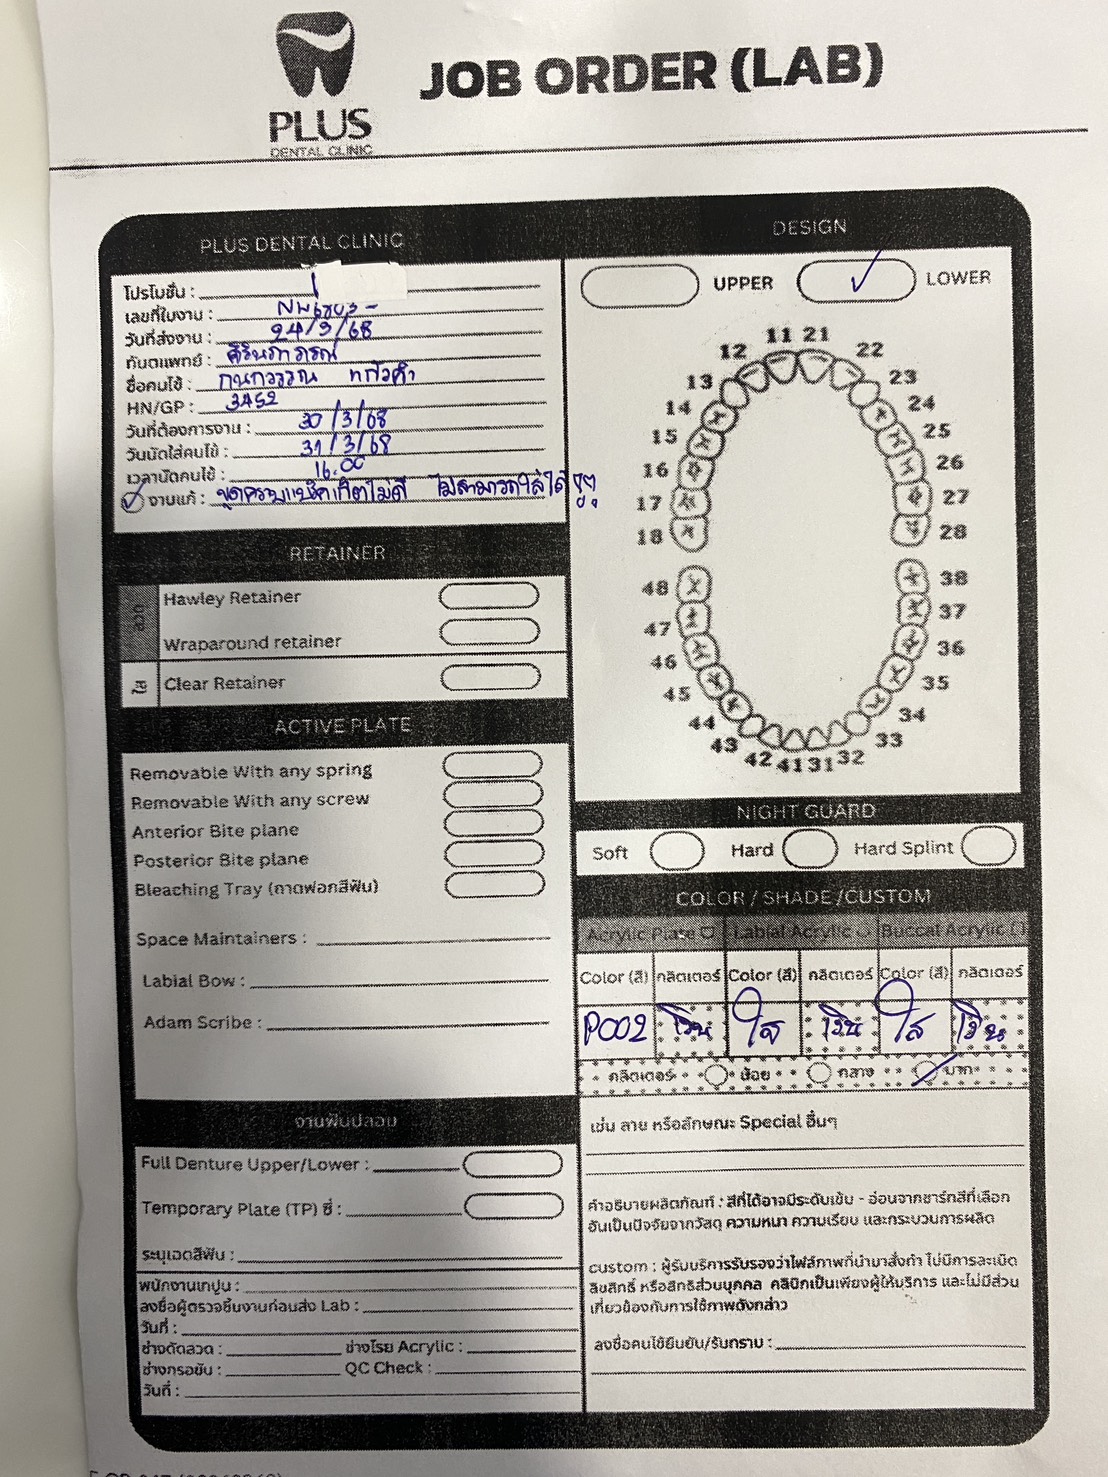 PLUS
DENTAL CLINIC
JOB ORDER (LAB)
PLUS DENTAL CLINIC
โปรโมชั่น :
เลขที่ใบงาน :
วันที่ส่งงาน : 24/3/68
ทันตแพทย์ : ศิรินภาภรณ์
ชื่อคนไข้ : กนกวรรณ
HN/GP : 3452
วันที่ต้องการงาน : 30/3/68
วันนัดใส่คนไข้ : 31/3/68
เวลานัดคนไข้ : 16.00
✓ งานแก้ : ไม่สามารถใส่ได้
RETAINER
ลวด
Hawley Retainer
Wraparound retainer
ใส
Clear Retainer
ACTIVE PLATE
Removable With any spring
Removable With any screw
Anterior Bite plane
Posterior Bite plane
Bleaching Tray (ถาดฟอกสีฟัน)
Space Maintainers :
Labial Bow :
Adam Scribe :
งานฟันปลอม
Full Denture Upper/Lower :
Temporary Plate (TP) ซี่ :
ระบุเฉดสีฟัน :
พนักงานเทปูน :
ลงชื่อผู้ตรวจชิ้นงานก่อนส่ง Lab :
วันที่ :
ช่างดัดลวด : ช่างโรย Acrylic :
ช่างกรอขัด : QC Check :
วันที่ :
DESIGN
UPPER ✓ LOWER
11 21
12 22
13 23
14 24
15 25
16 26
17 27
18 28
48 38
47 37
46 36
45 35
44 34
43 33
42 41 31 32
NIGHT GUARD
Soft Hard Hard Splint
COLOR / SHADE /CUSTOM
Acrylic Plate Labial Acrylic Buccal Acrylic
Color (สี) กลิตเตอร์ Color (สี) กลิตเตอร์ Color (สี) กลิตเตอร์
P002 เงิน ใส เงิน ใส เงิน
กลิตเตอร์ น้อย กลาง มาก
เช่น ลาย หรือลักษณะ Special อื่นๆ
คำอธิบายผลิตภัณฑ์ : สีที่ได้อาจมีระดับเข้ม - อ่อนจากชาร์ทสีที่เลือก
อันเป็นปัจจัยจากวัสดุ ความหนา ความเรียบ และกระบวนการผลิต
custom : ผู้รับบริการรับรองว่าไฟล์ภาพที่นำมาสั่งทำ ไม่มีการละเมิด
ลิขสิทธิ์ หรือสิทธิส่วนบุคคล คลินิกเป็นเพียงผู้ให้บริการ และไม่มีส่วน
เกี่ยวข้องกับการใช้ภาพดังกล่าว
ลงชื่อคนไข้ยืนยัน/รับทราบ :